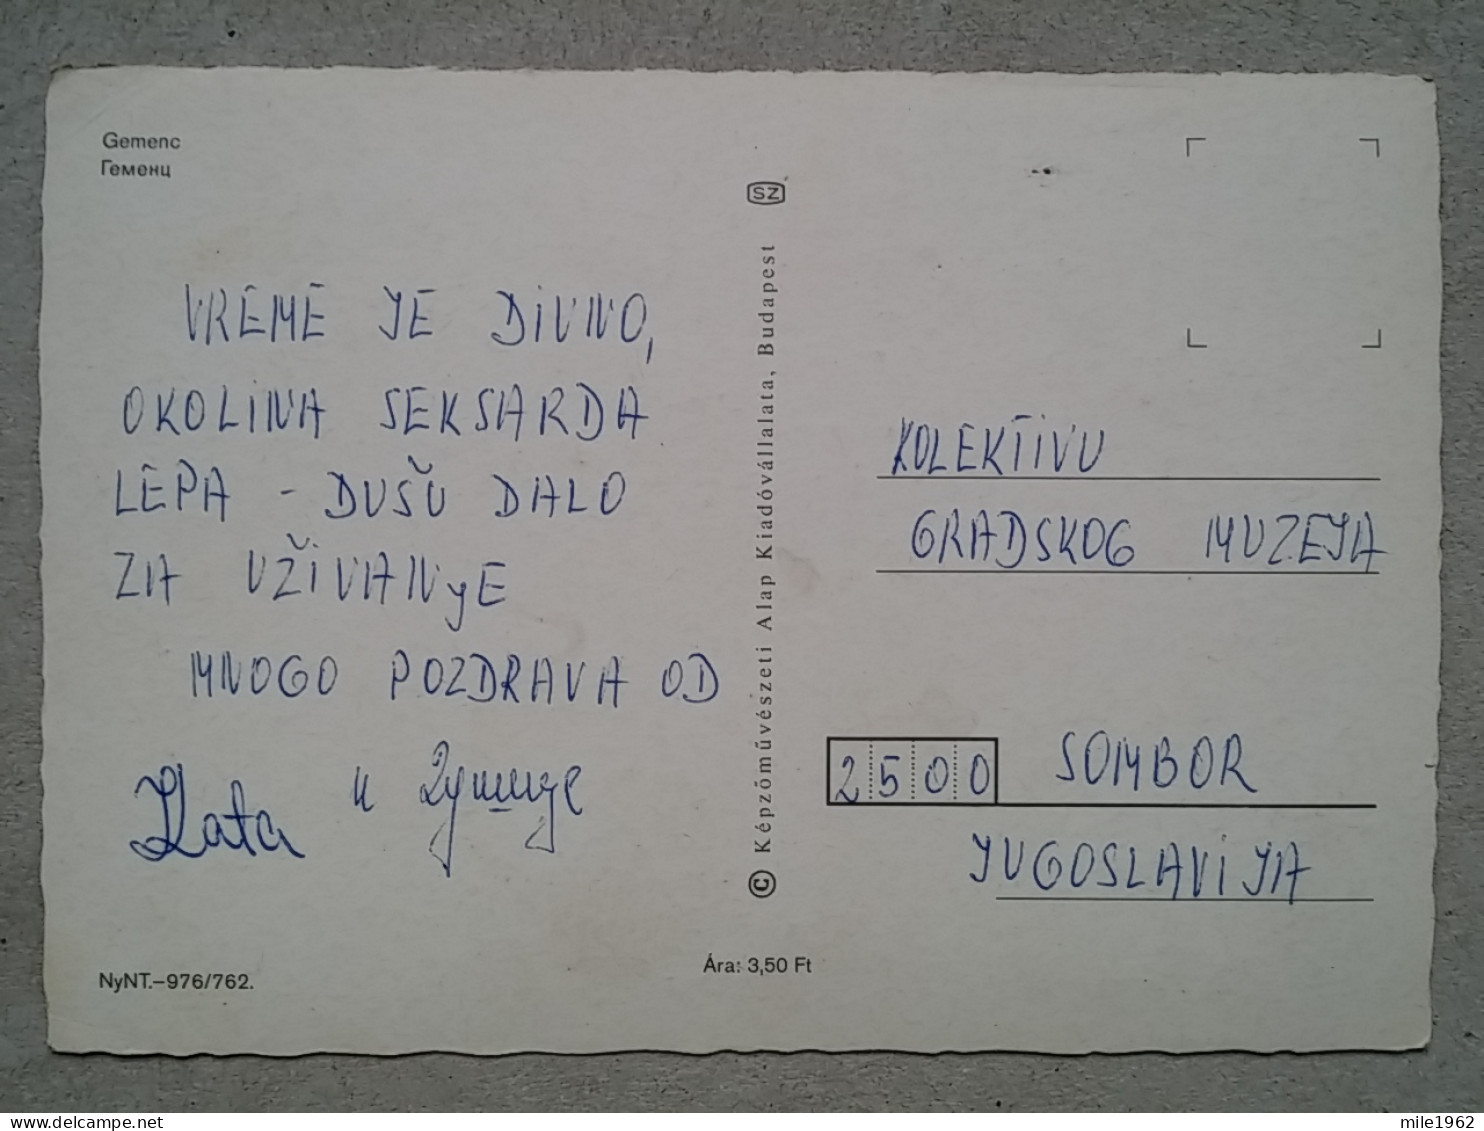 Gemenc
Геменц
VREME JE DIVNO,
OKOLINA SEKSARDA
LEPA - DUŠU DALO
ZA UŽIVANyE
MNOGO POZDRAVA OD
Zlata и
NyNT.–976/762.
SZ
© Képzőművészeti Alap Kiadóvállalata, Budapest
Ára: 3,50 Ft
KOLEKTIVU
GRADSKOG MUZEJA
2500 SOMBOR
JUGOSLAVIJA
delcampe.net
mile1962